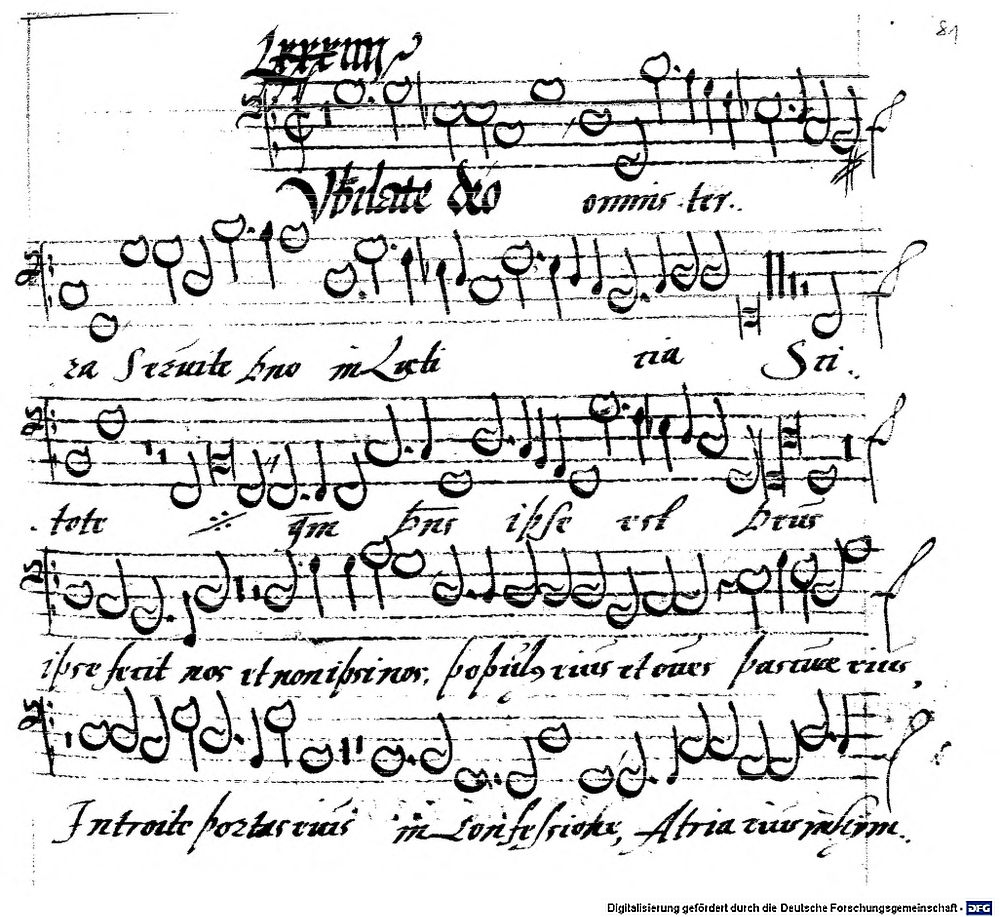 81
Lxxxiiii
Vbilate deo omnis ter..
ra Seruite dno in Lęti tia Sci.
. tote qm dns ipse est deus
ipse fecit nos et non ipsi nos, populus eius et oues pascuæ eius,
Introite portas eius in Confessione, Atria eius in hym.
Digitalisierung gefördert durch die Deutsche Forschungsgemeinschaft - DFG